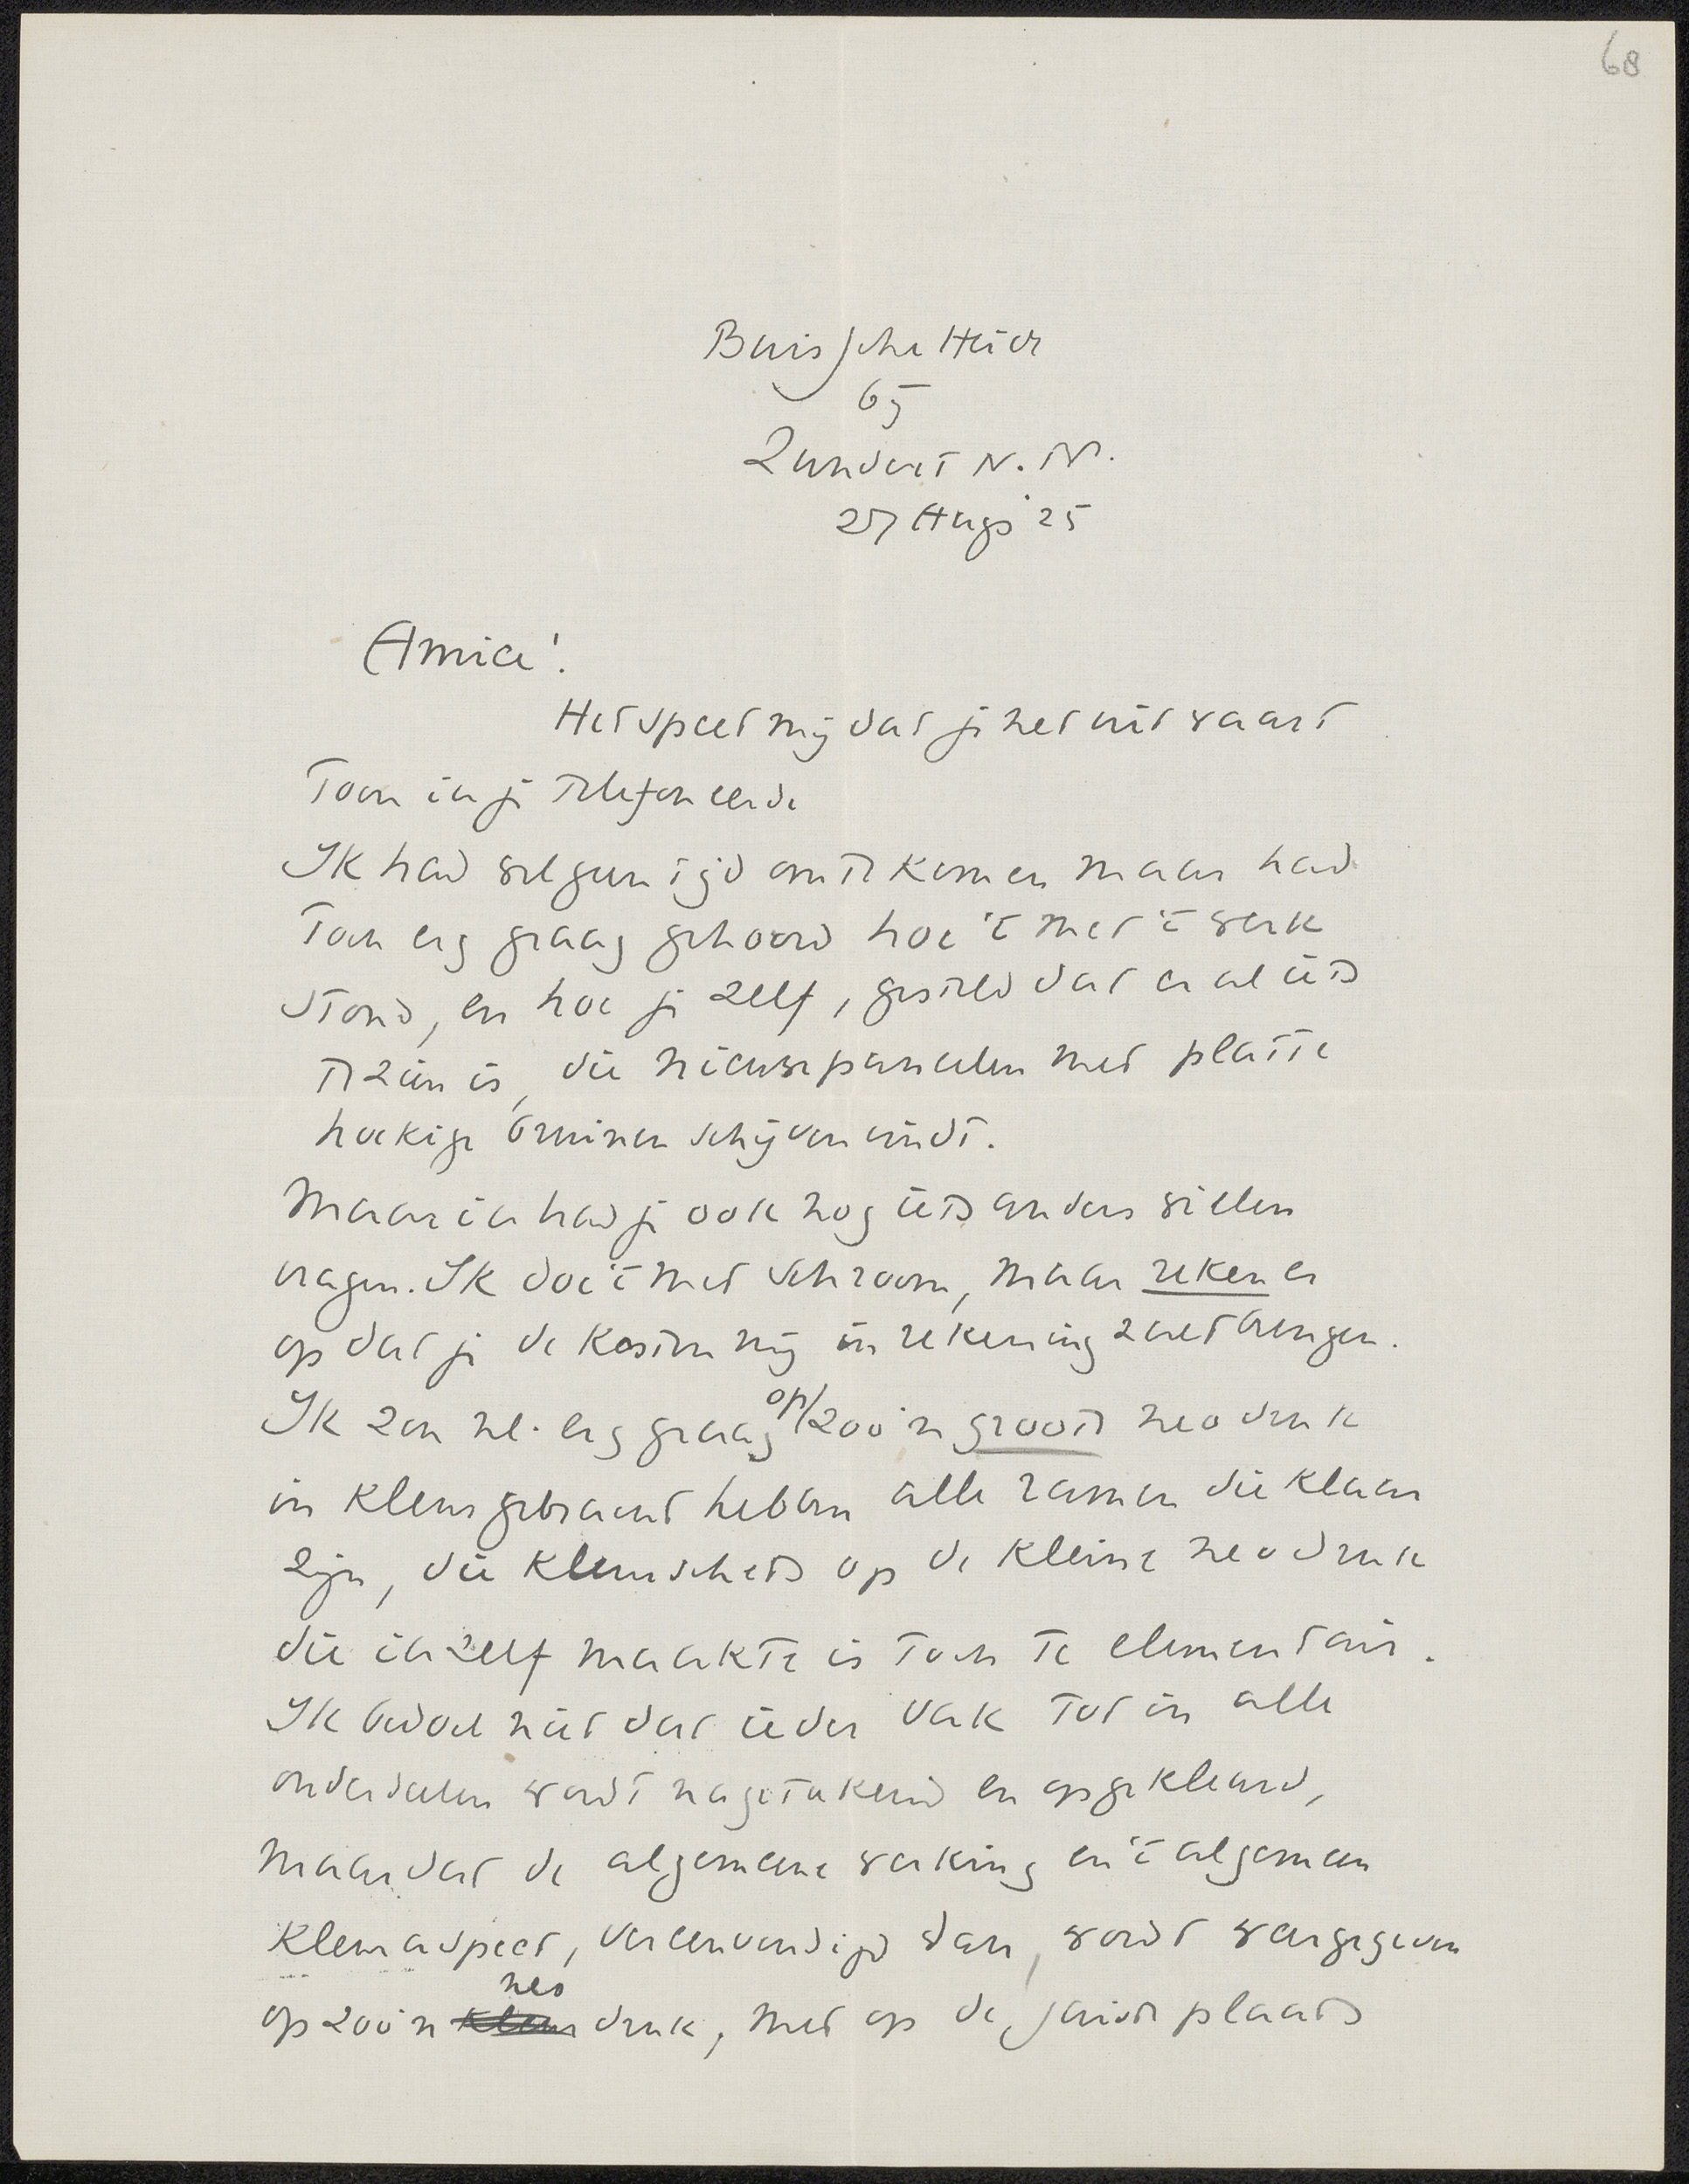 68
Buissche Heide
65
Zundert N. Br.
27 Aug '25
Amice!
Het speet mij dat je het niet waart
toen ik je telefoneerde
Ik had wel geen tijd om te komen maar had
toch erg graag gehoord hoe 't met 't werk
stond, en hoe je zelf, gesteld dat er al iets
te zien is, die nieuwe paneelen met platte
hoekige bruinen schijven vindt.
Maar ik had je ook nog iets anders willen
vragen. Ik doe 't met schroom, maar reken er
op dat je de kosten mij in rekening zult brengen.
Ik zou nl. erg graag op zoo'n groote neodruk
in kleur gebracht hebben alle ramen die klaar
zijn, die kleurschets op de kleine neodruk
die ik zelf maakte is toch te elementair.
Ik bedoel niet dat ieder vak tot in alle
onderdeelen wordt nageteekend en opgekleurd,
maar dat de algemeene werking en 't algemeen
kleuraspect, vereenvoudigd dan, wordt weergegeven
op zoo'n neo druk, met op de juiste plaats